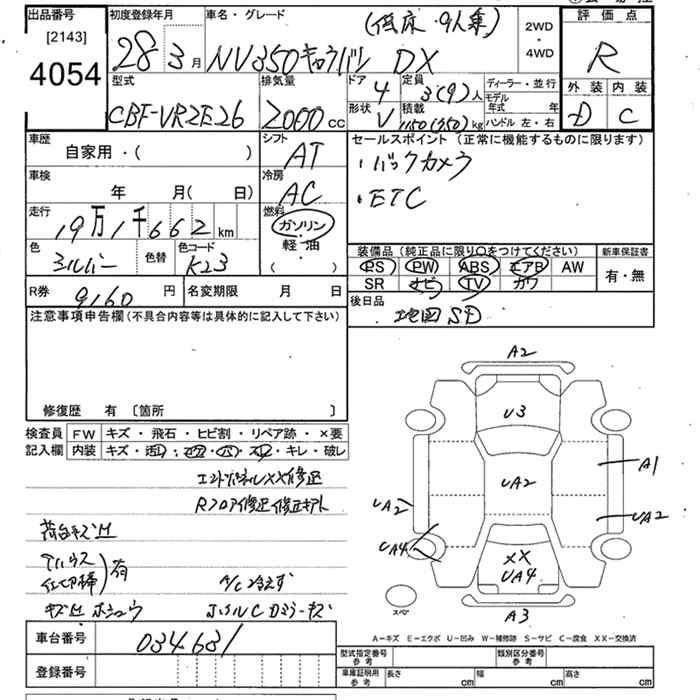 出品番号 初度登録年月 車名・グレード (低床・9人乗) 2WD・4WD 評価点
[2143]
4054
28 3月 NV350キャラバン DX R
型式 排気量 ドア 定員 ディーラー・並行 外装 内装
CBF-VR2E26 2000cc 4 3(9)人 モデル年式 年 D C
形状 積載
V 1150(350)kg ハンドル 左・右
車歴 シフト セールスポイント (正常に機能するものに限ります)
自家用・( ) AT ・バックカメラ
車検 冷房 ・ETC
年 月( 日) AC
走行 燃料
19万1千662km ガソリン
色 色替 色コード 軽・油
シルバー K23 ( )
装備品 (純正品に限り○をつけてください) 新車保証書
PS PW ABS エアB AW 有・無
SR ナビ TV カワ
R券 9160円 名変期限 月 日 後日品
地図SD
注意事項申告欄(不具合内容等は具体的に記入して下さい)
修復歴 有 [箇所 ]
検査員 FW キズ・飛石・ヒビ割・リペア跡・×要
記入欄 内装 キレ・破レ
A2
U3
UA2
A1
UA2
UA2
UA4
XX
UA4
A3
スペア
エンドパネルXX修正
Rフロア修正
荷台キズ
有
A/C冷えず
A－キズ E－エクボ U－凹み W－補修跡 S－サビ C－腐食 XX－交換済
車台番号 034681
登録番号
型式指定番号 参考 類別区分番号 参考
車庫証明用 参考 長さ cm 幅 cm 高さ cm